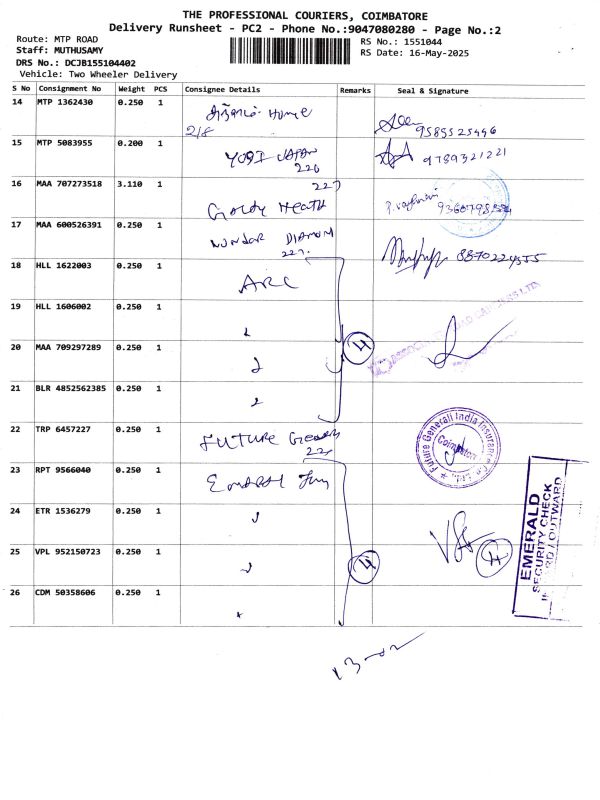 THE PROFESSIONAL COURIERS, COIMBATORE
Delivery Runsheet - PC2 - Phone No.:9047080280 - Page No.:2
Route: MTP ROAD
Staff: MUTHUSAMY
RS No.: 1551044
RS Date: 16-May-2025
DRS No.: DCJB155104402
Vehicle: Two Wheeler Delivery
S No Consignment No Weight PCS Consignee Details Remarks Seal & Signature
14 MTP 1362430 0.250 1 Home
2/8 9585525496
15 MTP 5083955 0.200 1 YOGI JAPAN 9789321221
226
16 MAA 707273518 3.110 1 227
17 MAA 600526391 0.250 1 DIAMOM
227.
18 HLL 1622003 0.250 1 ARC
19 HLL 1606002 0.250 1
20 MAA 709297289 0.250 1 4 ASSOCIATED ROAD CARRIERS LTD
21 BLR 4852562385 0.250 1
22 TRP 6457227 0.250 1 FUTURE Future Generali India Insurance Co. Ltd. Coimbatore
23 RPT 9566040 0.250 1
24 ETR 1536279 0.250 1
25 VPL 952150723 0.250 1 4 4
26 CDM 50358606 0.250 1
EMERALD
SECURITY CHECK
INWARD / OUTWARD